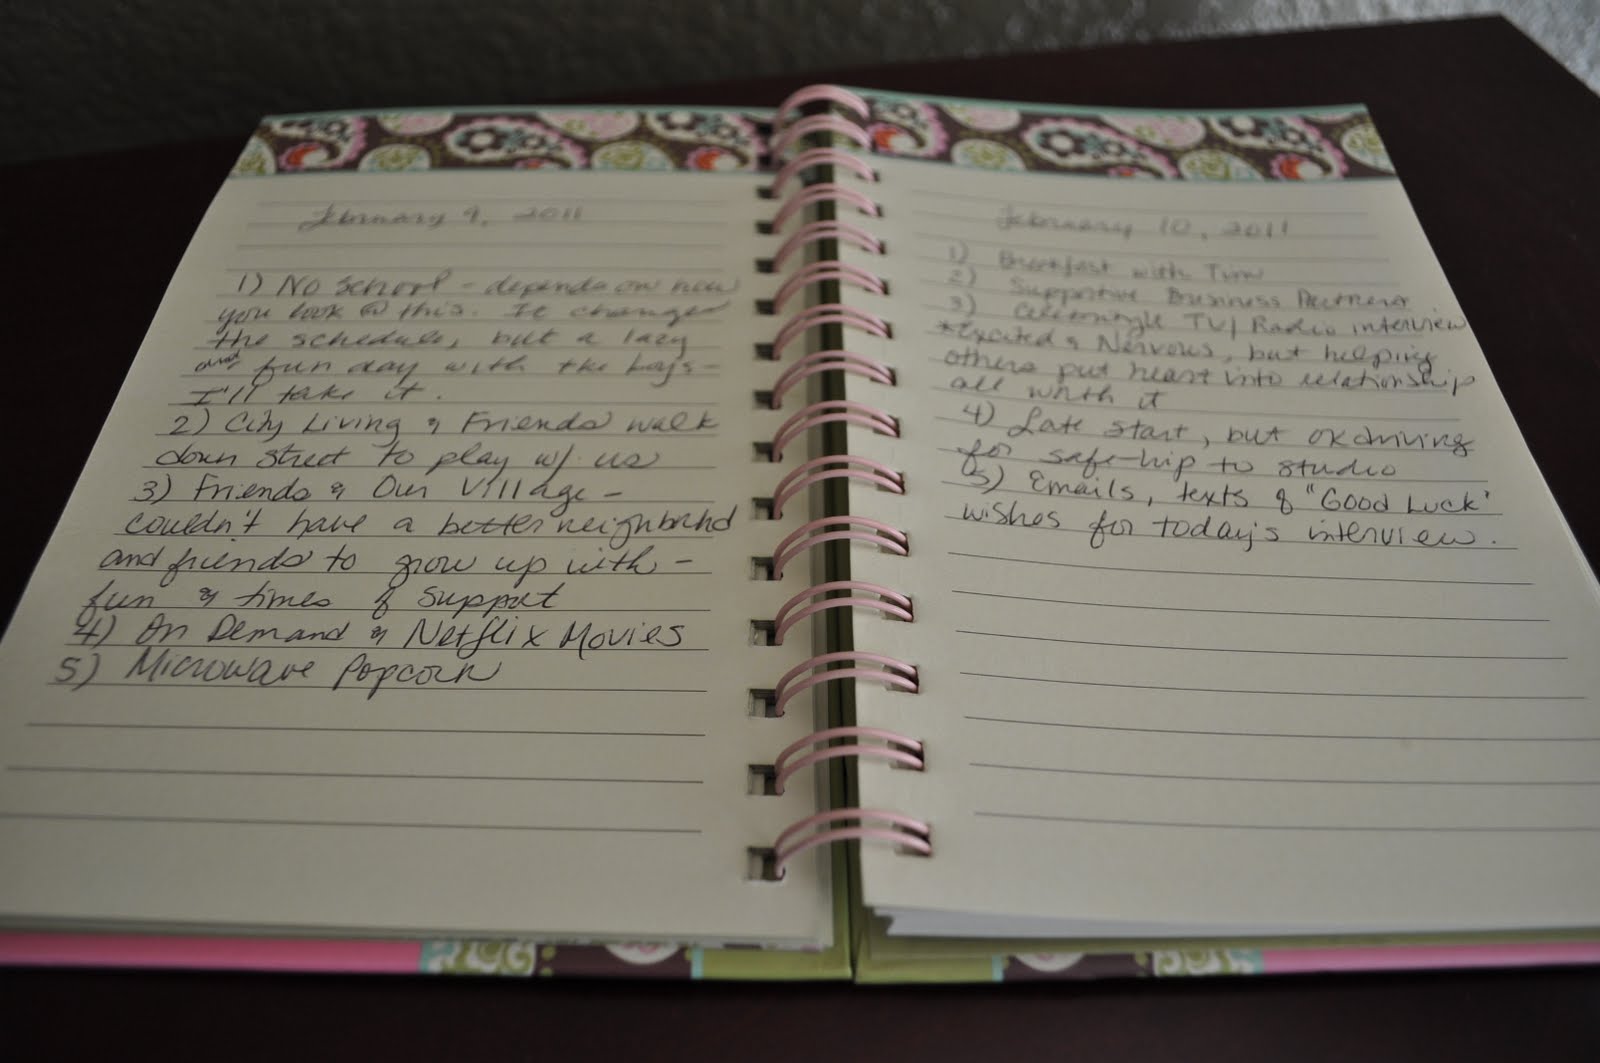 February 9, 2011
1) No School - depends on how
you look @ this. It changes
the schedule, but a lazy
and fun day with the boys -
I'll take it.
2) City Living & Friends walk
down street to play w/ us
3) Friends & Our Village -
couldn't have a better neighbrhd
and friends to grow up with -
fun & times of support
4) On Demand & Netflix Movies
5) Microwave Popcorn
February 10, 2011
1) Breakfast with Tim
2) Supportive Business Partners
3) TV/ Radio interview
*Excited & Nervous, but helping
others put heart into relationship
all worth it
4) Late start, but ok driving
for safe trip to studio
5) Emails, texts of "Good Luck'
wishes for today's interview.